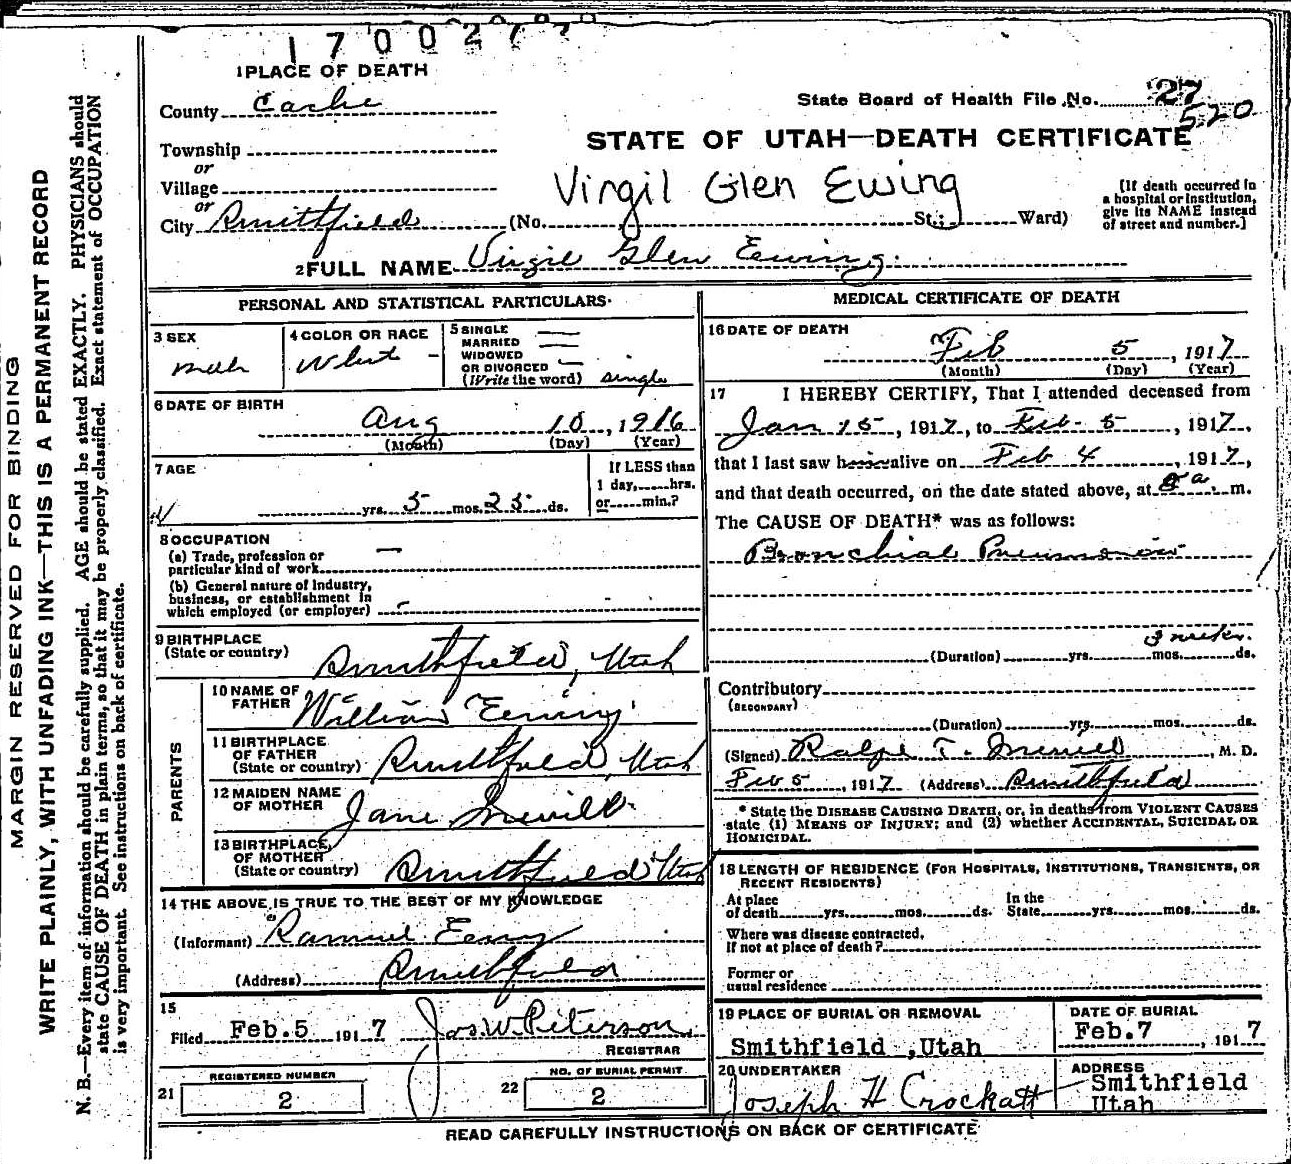 1700277
1 PLACE OF DEATH
County Cache
State Board of Health File No. 27
520
STATE OF UTAH—DEATH CERTIFICATE
Township
or
Village
or
City Smithfield (No. St.; Ward)
Virgil Glen Ewing
[If death occurred in a hospital or institution, give its NAME instead of street and number.]
2 FULL NAME Virgil Glen Ewing
PERSONAL AND STATISTICAL PARTICULARS
3 SEX
male
4 COLOR OR RACE
White
5 SINGLE
MARRIED
WIDOWED
OR DIVORCED
(Write the word) single
6 DATE OF BIRTH
Aug 10, 1916
(Month) (Day) (Year)
7 AGE
yrs. 5 mos. 25 ds.
If LESS than
1 day, hrs.
or min.?
8 OCCUPATION
(a) Trade, profession or
particular kind of work
(b) General nature of industry,
business, or establishment in
which employed (or employer)
9 BIRTHPLACE
(State or country) Smithfield, Utah
PARENTS
10 NAME OF
FATHER William Ewing
11 BIRTHPLACE
OF FATHER
(State or country) Smithfield, Utah
12 MAIDEN NAME
OF MOTHER Jane Merrill
13 BIRTHPLACE
OF MOTHER
(State or country) Smithfield Utah
14 THE ABOVE IS TRUE TO THE BEST OF MY KNOWLEDGE
(Informant) Samuel
(Address) Smithfield
15
Filed Feb. 5 1917 Jos. W. Peterson
REGISTRAR
21 REGISTERED NUMBER
2
22 NO. OF BURIAL PERMIT
2
MEDICAL CERTIFICATE OF DEATH
16 DATE OF DEATH
Feb 5, 1917
(Month) (Day) (Year)
17 I HEREBY CERTIFY, That I attended deceased from
Jan 15, 1917, to Feb. 5, 1917,
that I last saw him alive on Feb 4, 1917,
and that death occurred, on the date stated above, at a. m.
The CAUSE OF DEATH* was as follows:
Bronchial Pneumonia
3 weeks.
(Duration) yrs. mos. ds.
Contributory
(SECONDARY)
(Duration) yrs. mos. ds.
(Signed) Ralph T. Merrill, M. D.
Feb 5, 1917 (Address) Smithfield
* State the DISEASE CAUSING DEATH, or, in deaths from VIOLENT CAUSES
state (1) MEANS OF INJURY; and (2) whether ACCIDENTAL, SUICIDAL OR
HOMICIDAL.
18 LENGTH OF RESIDENCE (FOR HOSPITALS, INSTITUTIONS, TRANSIENTS, OR
RECENT RESIDENTS)
At place
of death yrs. mos. ds.
In the
State yrs. mos. ds.
Where was disease contracted,
If not at place of death?
Former or
usual residence
19 PLACE OF BURIAL OR REMOVAL
Smithfield ,Utah
DATE OF BURIAL
Feb.7, 1917
20 UNDERTAKER
Joseph H Crockatt
ADDRESS
Smithfield
Utah
READ CAREFULLY INSTRUCTIONS ON BACK OF CERTIFICATE
MARGIN RESERVED FOR BINDING
WRITE PLAINLY, WITH UNFADING INK—THIS IS A PERMANENT RECORD
N. B.—Every item of information should be carefully supplied. AGE should be stated EXACTLY. PHYSICIANS should
state CAUSE OF DEATH in plain terms, so that it may be properly classified. Exact statement of OCCUPATION
is very important. See instructions on back of certificate.